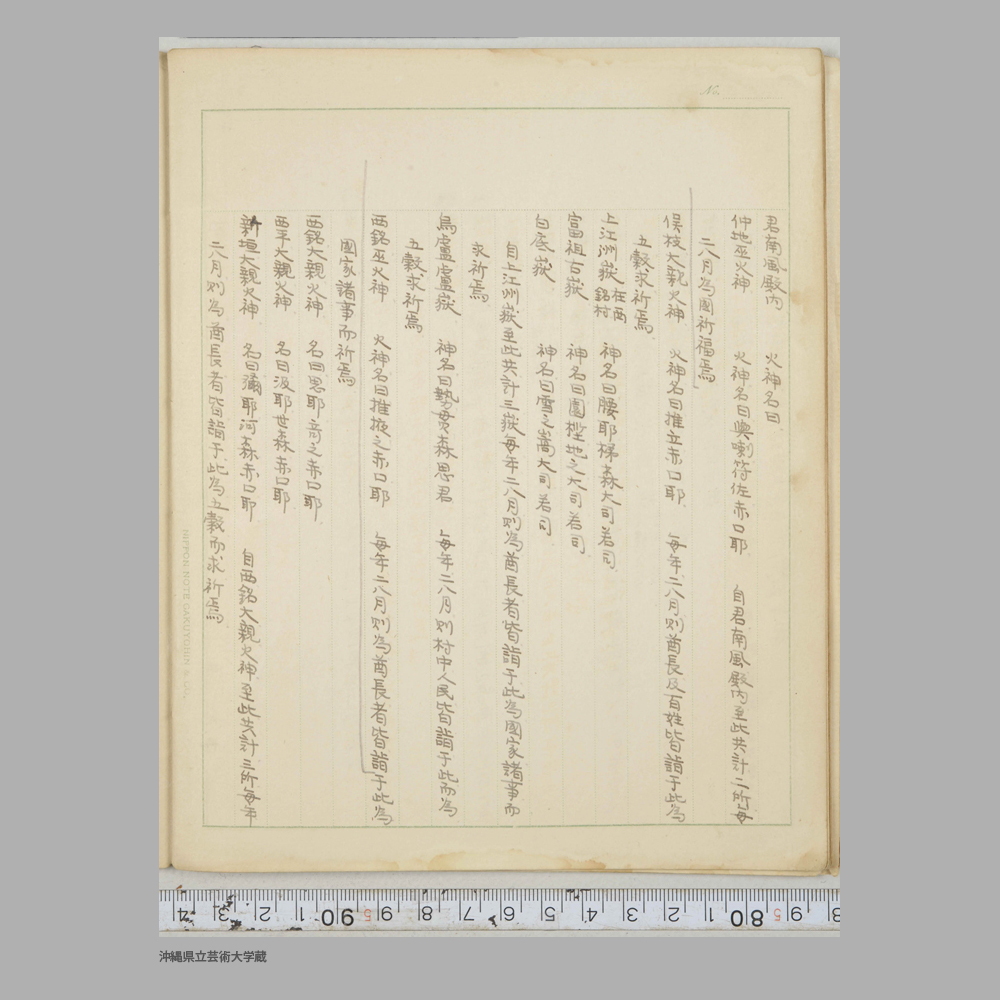 No.
君南風殿内　火神名曰
仲地巫火神　火神名曰與喇符佐赤口耶　自君南風殿内至此共計二所毎
二八月為國祈福焉
俣枝大親火神　火神名曰推立赤口耶　毎年二八月則酋長及百姓皆詣于此為
五穀求祈焉
上江洲嶽 在西銘村　神名曰腰耶梯森大司若司
富祖古嶽　神名曰園樫地之大司若司
白底嶽　神名曰雪之嵩大司若司
自上江州嶽至此共計三嶽毎年二八月則為酋長者皆詣于此為國家諸事而
求祈焉
烏盧盧嶽　神名曰勢貫森思君　毎年二八月則村中人民皆詣于此而為
五穀求祈焉
西銘巫火神　火神名曰推掖之赤口耶　毎年二八月則為酋長者皆詣于此為
國家諸事而祈焉
西銘大親火神　名曰思耶奇之赤口耶
西平大親火神　名曰汲耶世森赤口耶
新垣大親火神　名曰彌耶河森赤口耶　自西銘大親火神至此共計三所毎年
二八月則為酋長者皆詣于此為五穀而求祈焉
NIPPON NOTE GAKUYOHIN & CO.
4 3 2 1 90 5 9 8 7 6 5 4 3 2 1 80 5 9 8
沖縄県立芸術大学蔵